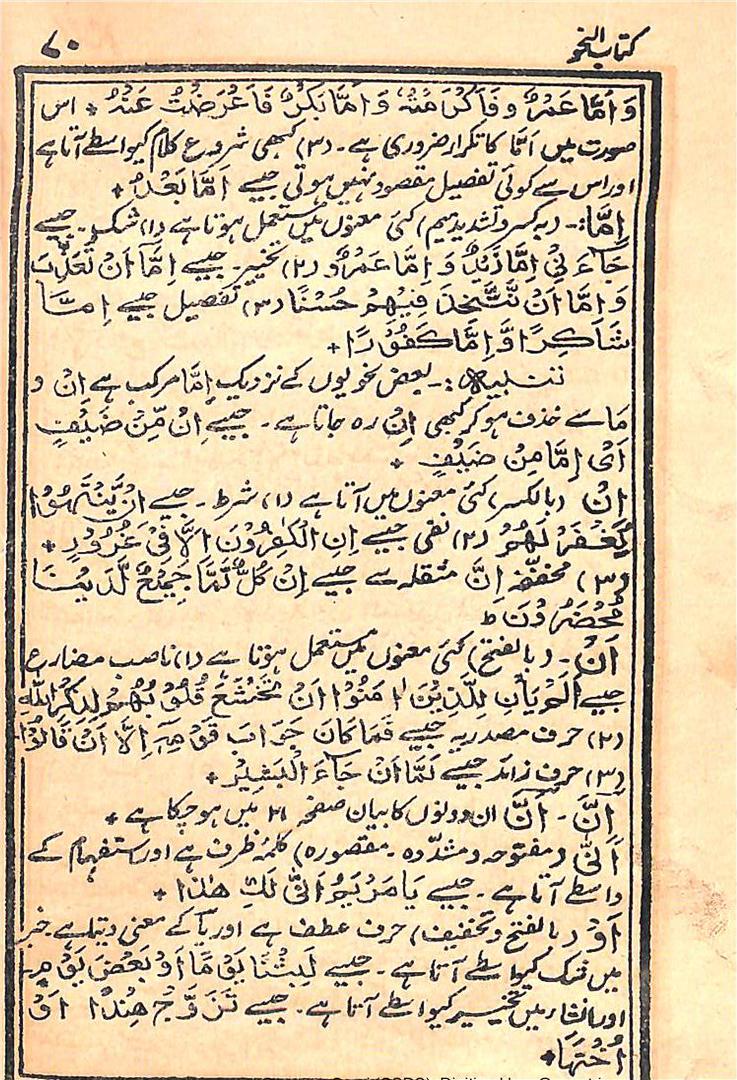 کتاب النحو
۷۰
وَاَمَّا عَمْرٌو فَاَكْرَمْتُهٗ وَاَمَّا بَكْرٌ فَاَعْرَضْتُ عَنْهُ ٭ اس
صورت میں اَمَّا کا تکرار ضروری ہے۔ (۳) کبھی شروع کلام کیواسطے آتا ہے
اور اس سے کوئی تفصیل مقصود نہیں ہوتی جیسے اَمَّا بَعْدُ ٭
اِمَّا:۔ (بہ کسر و تشدید میم) کئی معنوں میں مستعمل ہوتا ہے (۱) شک۔ جیسے
جَآءَنِیْ اِمَّا زَیْدٌ وَ اِمَّا عَمْرٌو (۲) تخییر۔ جیسے اِمَّآ اَنْ تُعَذِّبَ
وَ اِمَّا اَنْ تَتَّخِذَ فِیْهِمْ حُسْنًا (۳) تفصیل جیسے اِمَّا
شَاکِرًا وَّ اِمَّا کَفُوْرًا ٭
تنبیہ:۔ بعض نحویوں کے نزدیک اِمَّا مرکب ہے اِنْ و
مَا سے حذف ہو کر کبھی اِنْ رہ جاتا ہے۔ جیسے اِنْ مِّنْ ضَیْفٍ
اَیْ اِمَّا مِنْ ضَیْفٍ ٭
اِنْ (بالکسر) کئی معنوں میں آتا ہے (۱) شرط۔ جیسے اِنْ یَّنْتَهُوْا
یُغْفَرْ لَهُمْ (۲) نفی جیسے اِنِ الْکٰفِرُوْنَ اِلَّا فِیْ غُرُوْرٍ ٭
(۳) مخففہ اِنَّ مثقلہ سے جیسے اِنْ کُلٌّ لَّمَّا جَمِیْعٌ لَّدَیْنَا
مُحْضَرُوْنَ ط
اَنْ۔ (بالفتح) کئی معنوں میں مستعمل ہوتا ہے (۱) ناصب مضارع
جیسے اَلَمْ یَأْنِ لِلَّذِیْنَ اٰمَنُوْا اَنْ تَخْشَعَ قُلُوْبُهُمْ لِذِکْرِ اللّٰهِ
(۲) حرف مصدریہ جیسے فَمَا کَانَ جَوَابَ قَوْمِهٖٓ اِلَّا اَنْ قَالُوْا
(۳) حرف زائد جیسے لَمَّا اَنْ جَآءَ الْبَشِیْرُ ٭
اِنَّ۔ اَنَّ ان دونوں کا بیان صفحہ ۲۱ میں ہو چکا ہے ٭
اَنّٰی (مفتوحہ و مشدّدہ۔ مقصورہ) کلمۂ ظرف ہے اور استفہام کے
واسطے آتا ہے۔ جیسے یَا مَرْیَمُ اَنّٰی لَكِ هٰذَا ٭
اَوْ (بالفتح و تخفیف) حرف عطف ہے اور یا کے معنی دیتا ہے خبر
میں شک کیواسطے آتا ہے۔ جیسے لَبِثْنَا یَوْمًا اَوْ بَعْضَ یَوْمٍ۔
اور انشاء میں تخییر کیواسطے آتا ہے۔ جیسے تَزَوَّجْ هِنْدًا اَوْ
اُخْتَهَا ٭